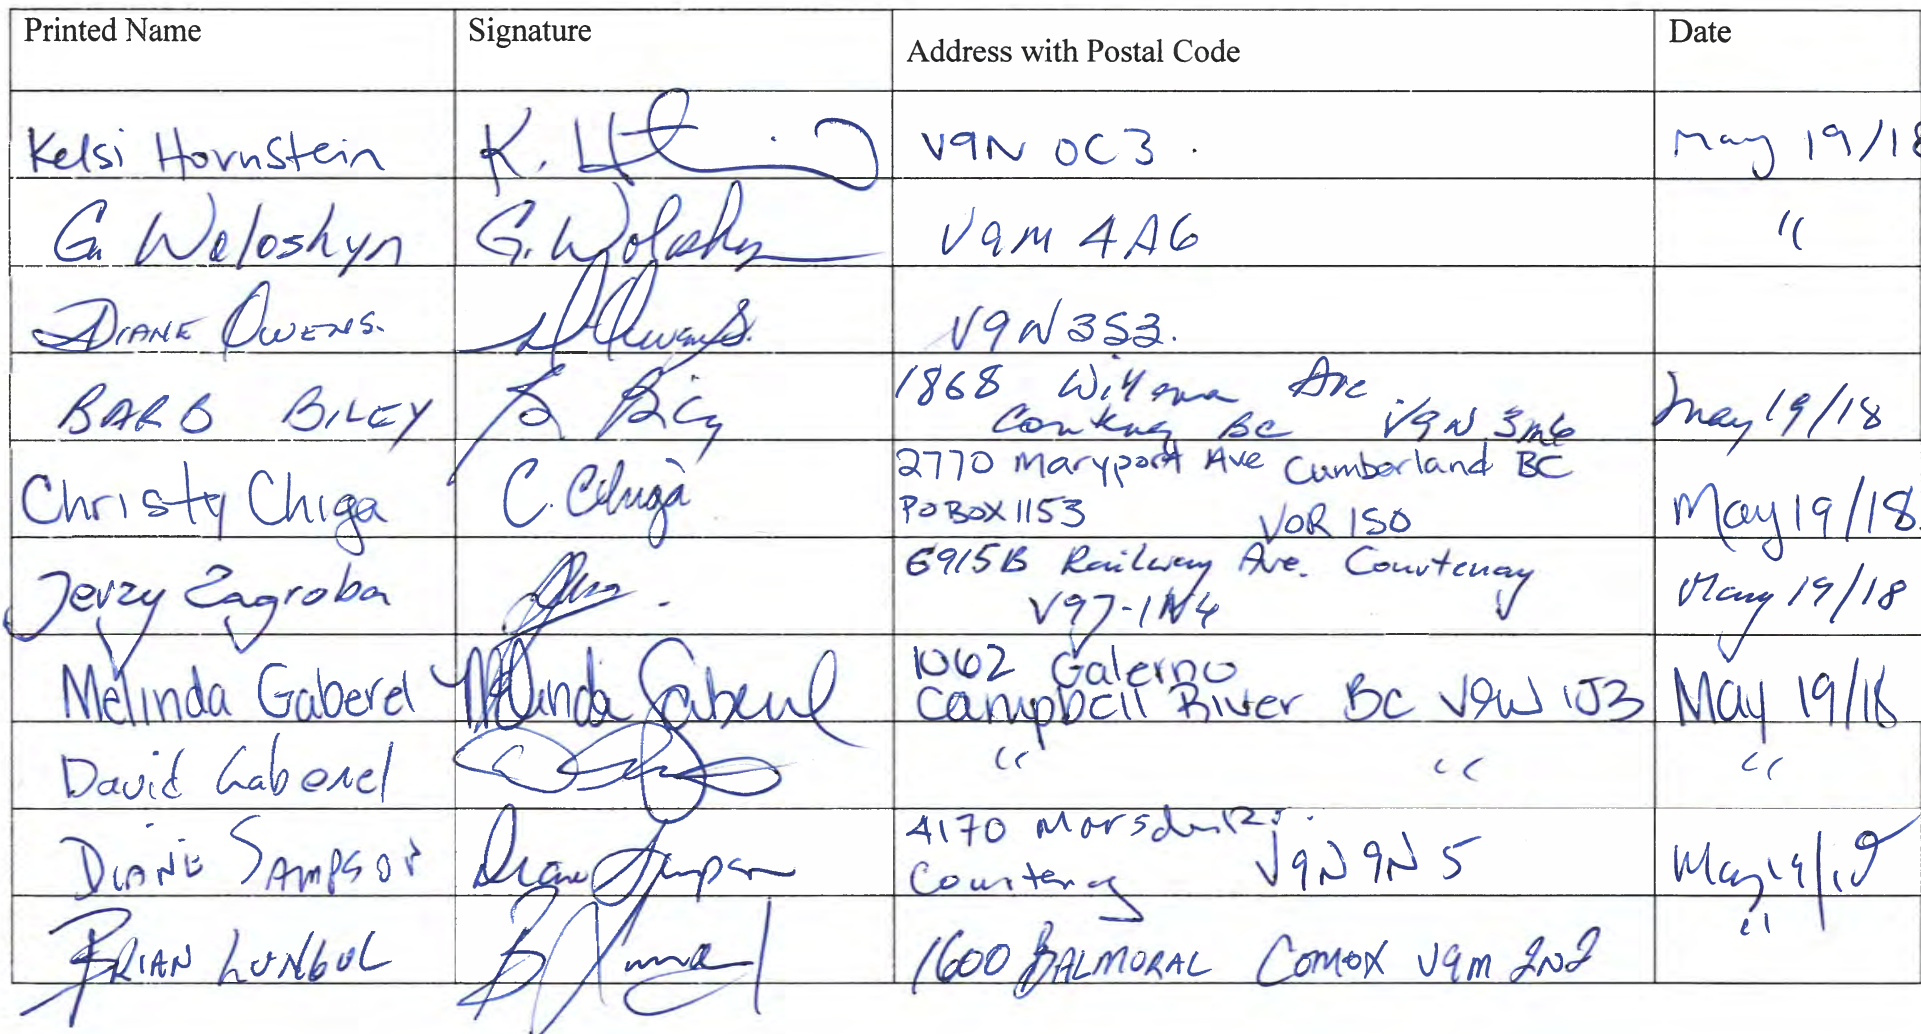 Printed Name Signature Address with Postal Code Date
Kelsi Hornstein K. V9N 0C3. May 19/18
G. Woloshyn G. Woloshyn V9M 4A6 "
DIANE OWENS. D Owens. V9N 3S3.
BARB BILEY 1868 Ave
BC V9N 3M6 May 19/18
Christy Chiga C. Chiga 2770 Maryport Ave Cumberland BC
PO BOX 1153 V0R 1S0 May 19/18.
Jerzy Zagroba 6915B Railway Ave. Courtenay
V9J-1N4 May 19/18
Melinda Gaberel Melinda Gaberel 1062 Galerno
Campbell River BC V9W 1J3 May 19/18
David Gaberel " " "
DIANE SAMPSON Diane Sampson 4170
Courtenay V9N 9N5 May 19/18
BRIAN B 1600 BALMORAL COMOX V9M 2N2 "